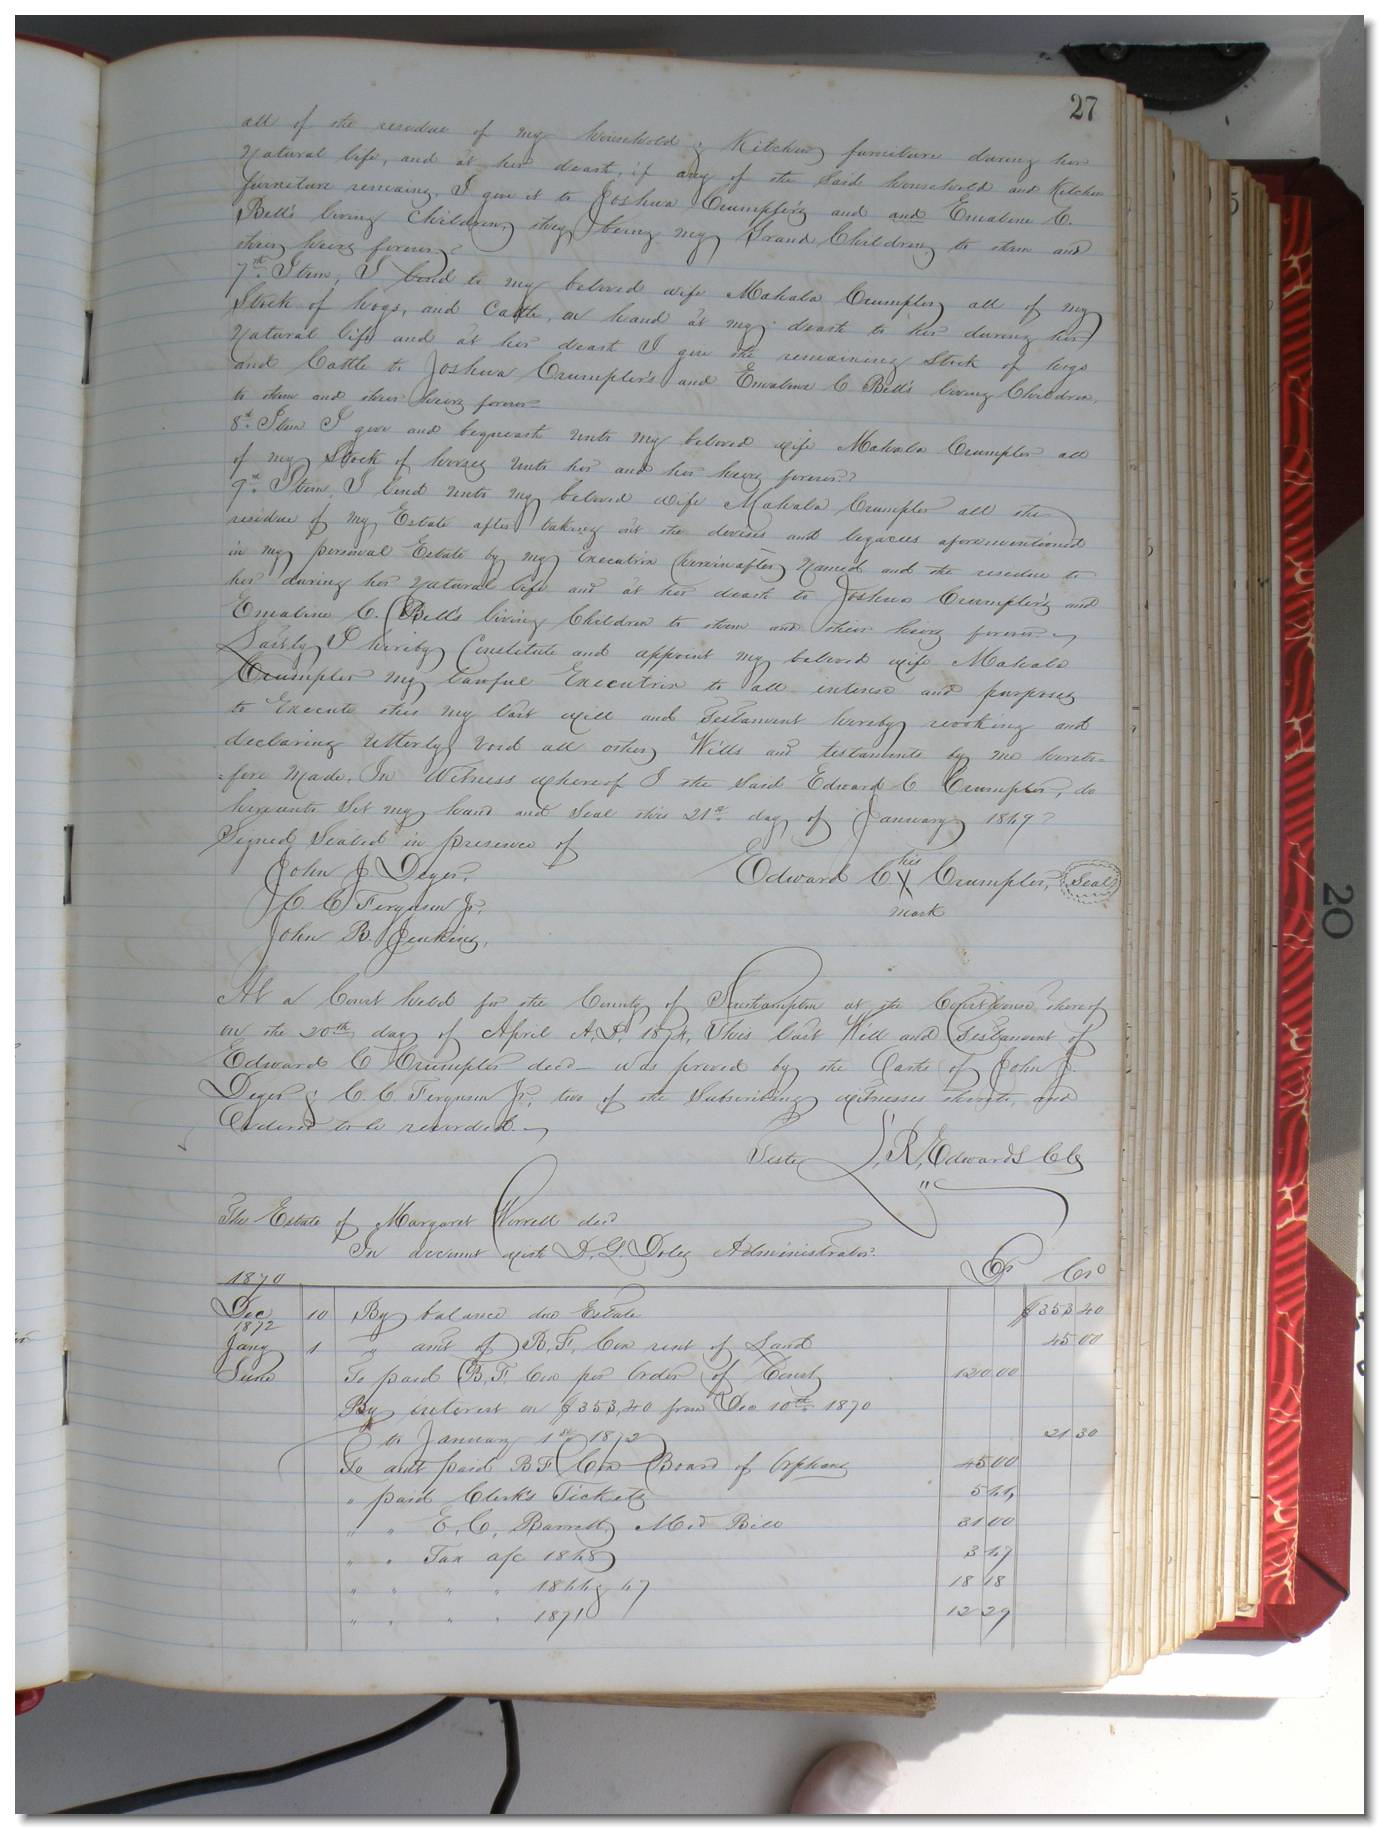 27
all of the residue of my household & Kitchen furniture during her
Natural life, and at her death, if any of the said household and Kitchen
furniture remaing, I give it to Joshua Crumpler's and and Emaline C.
Bell's living Children, they being my Grand Children to them and
their heirs forever.
7th. Item, I lend to my beloved wife Mahala Crumpler, all of my
Stock of hogs, and Cattle, on hand at my death to her during her
Natural life and at her death I give the remaining Stock of hogs
and Cattle to Joshua Crumpler's and Emaline C Bell's living Children,
to them and their heirs forever
8th. Item I give and bequeath unto my beloved wife Mahala Crumpler all
of my Stock of horses unto her and her heirs forever.
9th. Item. I lend unto my beloved wife Mahala Crumpler all the
residue of my Estate after taking out the devises and legacies aforementioned
in my personal Estate by my Executrix hereinafter Named and the residue to
her during her Natural life and at her death to Joshua Crumpler's and
Emaline C. Bell's living Children to them and their heirs forever
Lastly I hereby Constitute and appoint my beloved wife Mahala
Crumpler my lawful Executrix to all intense and purposes
to Execute this my last will and Testament hereby revoking and
declaring Utterly Void all other Wills and testaments by me hereto-
=fore Made. In Witness whereof I the said Edward C Crumpler, do
hereunto Set my hand and Seal this 21st. day of January 1869
Signed Sealed in presence of
John J Deyer.
his
Edward C X Crumpler, Seal
mark
C. C Ferguson Jr.
John B. Jenkins,
At a Court held for the County of Southampton at the Courthouse thereof
on the 20th day of April A.D. 1874, This last Will and Testament of
Edward C Crumpler decd— was proved by the Oaths of John J.
Deyer & C. C. Ferguson Jr, two of the Subscribing witnesses thereto, and
Ordered to be recorded.
Teste L. R. Edwards Clk
The Estate of Margaret Worrell decd
In account with D. G. Doles Administrator.
1870 Dr Cro
Dec 10 By balance due Estate $353 40
1872
Jany 1 " amt of B. F. Cox rent of Land 45 00
June To paid B. F. Cox per Order of Court 120 00
By interest on $353,40 from Dec 10th 1870
to January 1st 1872 21 30
To amt paid B F Cox Board of Orphans 45 00
" paid Clerk's Tickets 5 66
" " E. C. Barrett, Med Bill 31 00
" " Tax a/c 1868 3 67
" " " " 1866 & 67 18 18
" " " " 1871 12 29
20